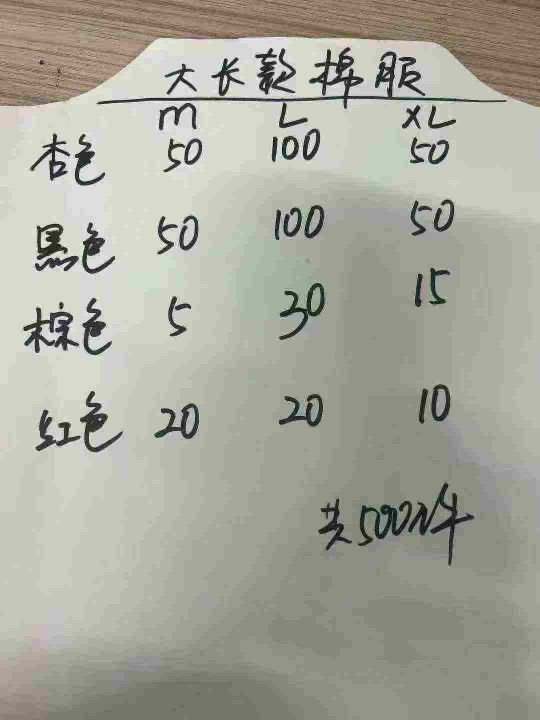 大长款棉服
m L XL
杏色 50 100 50
黑色 50 100 50
棕色 5 30 15
红色 20 20 10
共500件